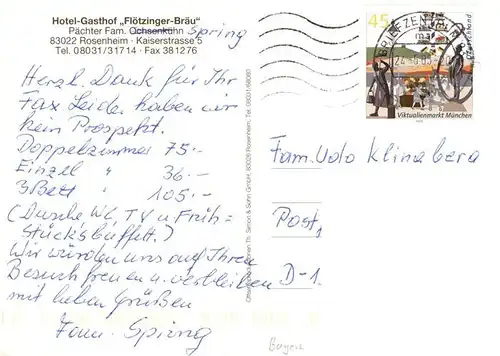 Hotel-Gasthof „Flötzinger-Bräu“
Pächter Fam. Ochsenkühn Spring
83022 Rosenheim · Kaiserstrasse 5
Tel. 08031/31714 · Fax 381276
Herzl. Dank für Ihr
Fax. Leider haben wir
kein Prospekt.
Doppelzimmer 75.-
Einzel " 36.-
3 Bett " 105.-
(Dusche WC, TV u Früh=
stücksbuffett.)
Wir würden uns auf Ihren
Besuch freuen u. verbleiben
mit lieben Grüßen
Fam. Spring
Simon & Sohn GmbH, 83026 Rosenheim, Tel. 08031/68080
45
BRIEFZENTRUM
Deutschland
Viktualienmarkt München
Fam. Udo Klinaberg
Post,
D-1.
Bayern